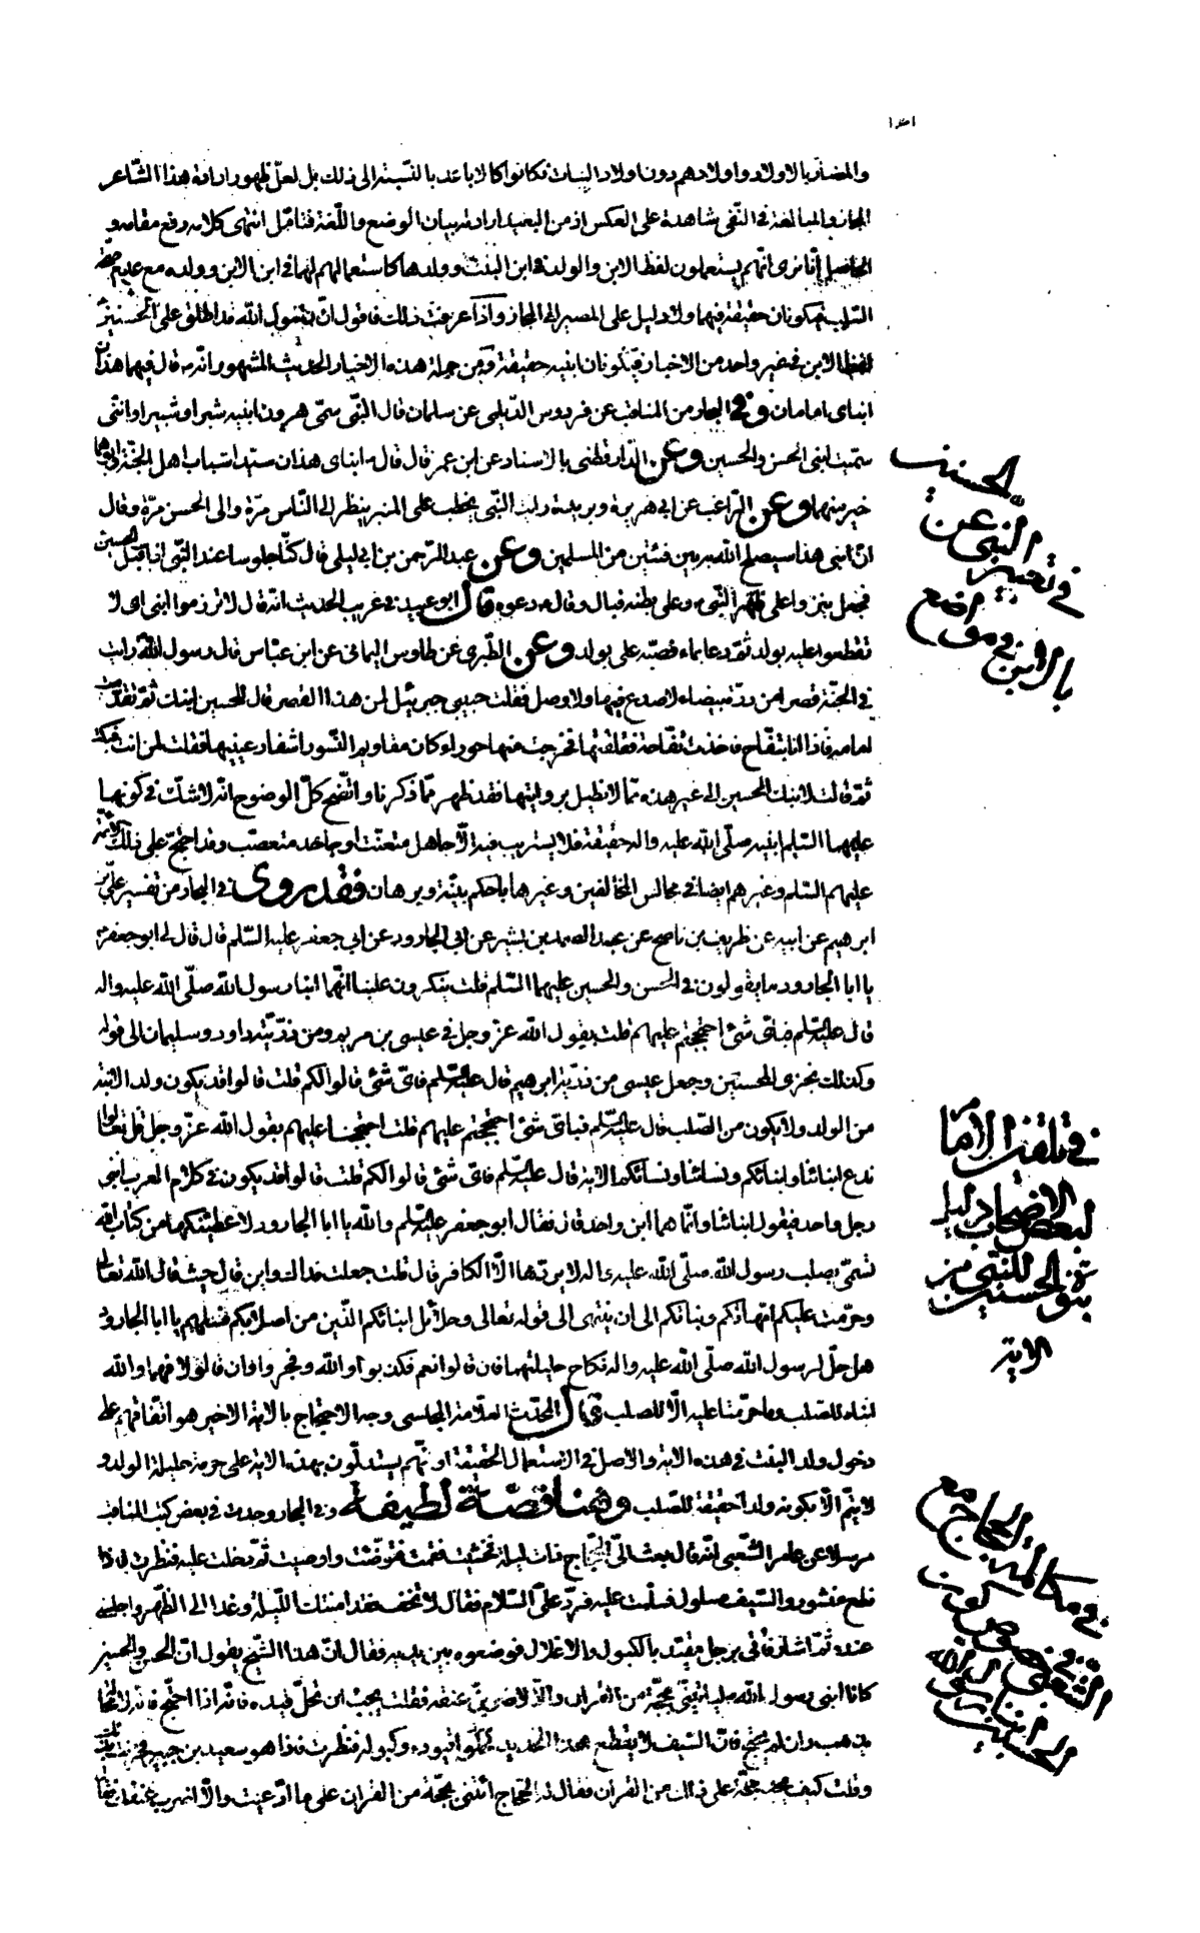 والمضار بالاولاد واولادهم دون اولاد البنات فكانوا كالاباعد بالنسبة الى ذلك بل لعل ظهور ارادة هذا الشاعر
المجاز والمبالغة في النفى شاهدة على العكس اذ من البعيد ارادته بيان الوضع واللغة فتامل انتهى كلامه رفع مقامه و
الحاصل انا نرى انهم يستعملون لفظ الابن والولد في ابن البنت وولدها كاستعمالهم لهما في ابن الابن وولده مع عدم صحة
السلب فيكونان حقيقة فيهما ولا دليل على المصير الى المجاز واذا عرفت ذلك فاقول ان رسول الله قد اطلق على الحسنين
لفظ الابن في غير واحد من الاخبار فيكونان ابنيه حقيقة ومن جملة هذه الاخبار الحديث المشهور انه قال فيهما هذان
ابناى امامان وفي البحار من المناقب عن فردوس الديلمى عن سلمان قال النبى سمى هرون ابنيه شبرا وشبيرا وانى
سميت ابنى الحسن والحسين وعن الدارقطنى بالاسناد عن ابن عمر قال قال ابناى هذان سيدا شباب اهل الجنة وابوهما
خير منهما وعن الراغب عن ابى هريرة وبريدة رايت النبى يخطب على المنبر ينظر الى الناس مرة والى الحسن مرة وقال
ان ابنى هذا سيصلح الله به بين فئتين من المسلمين وعن عبد الرحمن بن ابى ليلى قال كنا جلوسا عند النبى اذ اقبل الحسين
فجعل ينزو على ظهر النبى وعلى بطنه فبال وقال دعوه قال ابو عبيد في غريب الحديث انه قال لا تزرموا ابنى اى لا
تقطعوا عليه بوله ثم دعا بماء فصبه على بوله وعن الطبرى عن طاوس اليمانى عن ابن عباس قال رسول الله رايت
في الجنة قصرا من درة بيضاء لا صدع فيها ولا وصل فقلت حبيبى جبرئيل لمن هذا القصر قال للحسين ابنك ثم تقدمت
امامه فاذا انا بتفاح فاخذت تفاحة ففلقتها فخرجت منها حوراء كان مقاديم النسور اشفار عينيها فقلت لمن انت فبكت
ثم قالت لابنك الحسين الى غير هذه مما لا نطيل بروايتها فقد ظهر مما ذكرنا واتضح كل الوضوح انه لا شك في كونهما
عليهما السلم ابنيه صلى الله عليه واله حقيقة فلا يستريب فيه الا جاهل متعنت او جاحد متعصب وقد احتج على ذلك الائمة
عليهم السلم وغيرهم ايضا في مجالس المخالفين وغيرها باحكم بينة وبرهان فقد روى في البحار من تفسير على بن
ابرهيم عن ابيه عن ظريف بن ناصح عن عبد الصمد بن بشير عن ابى الجارود عن ابى جعفر عليه السلم قال قال لى ابو جعفر
يا ابا الجارود ما يقولون في الحسن والحسين عليهما السلم قلت ينكرون علينا انهما ابنا رسول الله صلى الله عليه واله
قال عليه السلم فباى شئ احتججتم عليهم قلت بقول الله عز وجل في عيسى بن مريم ومن ذريته داود وسليمان الى قوله
وكذلك نجزى المحسنين وجعل عيسى من ذرية ابرهيم قال عليه السلم فاى شئ قالوا لكم قلت قالوا قد يكون ولد الابنة
من الولد ولا يكون من الصلب قال عليه السلم فباى شئ احتججتم عليهم قلت احتججنا عليهم بقول الله عز وجل قل تعالوا
ندع ابنائنا وابنائكم ونسائنا ونسائكم الاية قال عليه السلم فاى شئ قالوا لكم قلت قالوا قد يكون في كلام العرب ابنى
رجل واحد فيقول ابنائنا وانما هما ابن واحد قال فقال ابو جعفر عليه السلم والله يا ابا الجارود لاعطينكها من كتاب الله
تسمى بصلب رسول الله صلى الله عليه واله لا يردها الا الكافر قال قلت جعلت فداك واين قال حيث قال الله تعالى
وحرمت عليكم امهاتكم وبناتكم الى ان ينتهى الى قوله تعالى وحلائل ابنائكم الذين من اصلابكم فسلهم يا ابا الجارود
هل حل لرسول الله صلى الله عليه واله نكاح حليلتهما فان قالوا نعم فكذبوا والله وفجروا وان قالوا لا فهما والله
ابناه للصلب وما حرمتا عليه الا للصلب قال المحدث العلامة المجلسى وجه الاحتجاج بالاية الاخير هو اتفاقهم على
دخول ولد البنت في هذه الاية والاصل في الاستعمال الحقيقة او انهم يستدلون بهذه الاية على حرمة حليلة الولد و
لا يتم الا بكونه ولدا حقيقة للصلب وههنا قصة لطيفة وفي البحار وجدت في بعض كتب المناقب
مرسلا عن عامر الشعبى انه قال بعث الى الحجاج ذات ليلة فخشيت فقمت فتوضئت واوصيت ثم دخلت عليه فنظرت فاذا
نطع منشور والسيف مسلول فسلمت عليه فرد على السلام فقال لا تخف فقد امنتك الليلة وغدا الى الظهر واجلسنى
عنده ثم اشار فاتى برجل مقيد بالكبول والاغلال فوضعوه بين يديه فقال ان هذا الشيخ يقول ان الحسن والحسين
كانا ابنى رسول الله لياتينى بحجة من القران والا لاضربن عنقه فقلت يجب ان تحل قيده فانه اذا احتج فانه لا محالة
يذهب وان لم يحتج فان السيف لا يقطع هذا الحديد فحلوا قيوده وكبوله فنظرت فاذا هو سعيد بن جبير فحزنت بذلك
وقلت كيف يجد حجة على ذلك من القران فقال له الحجاج ائتنى بحجة من القران على ما ادعيت والا اضرب عنقك فقال
في تعبير النبى عن الحسنين
بالابن في مواضع
في تلقين الامام
لبعض الاصحاب دليل
بنوة الحسنين للنبى من
الاية
في مكالمة الحجاج مع
الشعبى في خصوص كون
الحسنين ابنا رسول الله